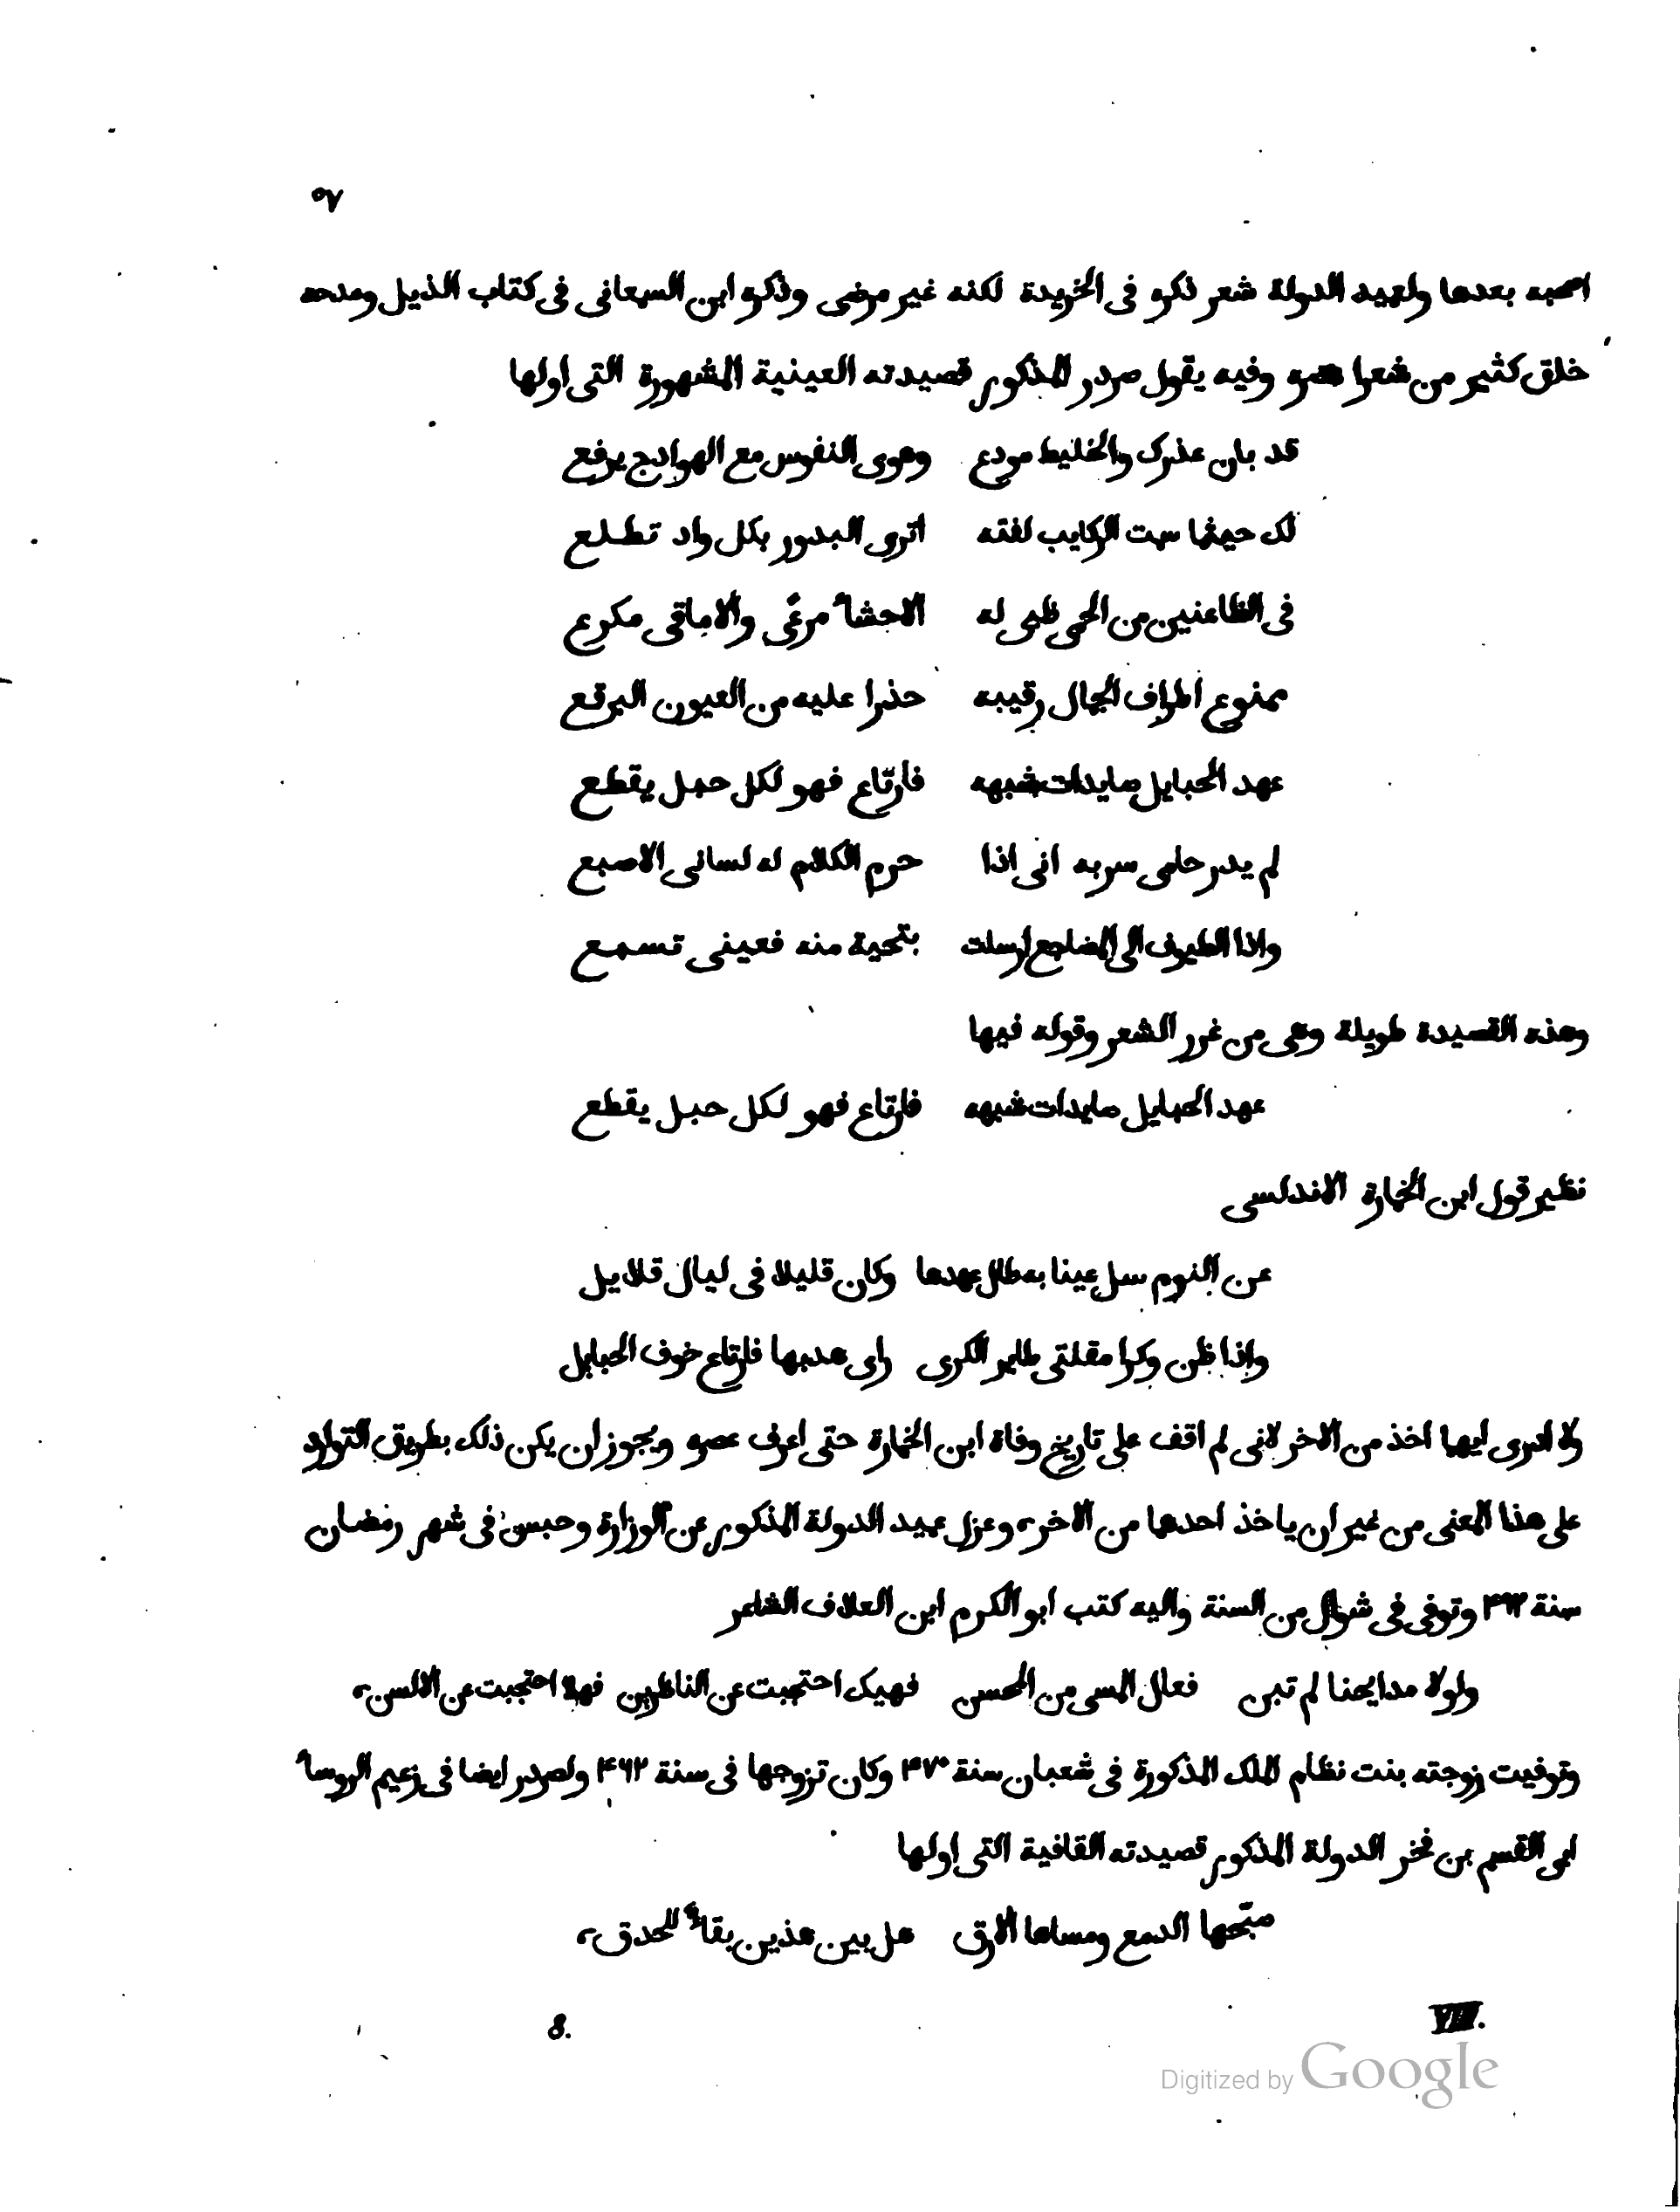 ٥٧
اصحبه بعدها ولعميد الدولة شعر ذكره فى الخريدة لكنه غير مرضى وذكره ابن السمعانى فى كتاب الذيل ومدحه
خلق كثير من شعرا عصره وفيه يقول صردر المذكور قصيدته العينية المشهورة التى اولها
قد بان عذرك والخليط مودع وهوى النفوس مع الهوادج يرفع
لك حيثما سمت الركايب لفتة اترى البدور بكل واد تطلع
فى الظاعنين من الحمى ظبى له الاحشاء مرعًى والاماقى مكرع
ممنوع اطراف الجمال رقيبه حذرا عليه من العيون البرقع
عهد الحبايل صايدات شبهه فارتّاع فهو لكل حبل يقطع
لم يدر حامى سربه انى اذا حرم الكلام له لسانى الاصبع
واذا الطيوف الى المضاجع ارسلت بتحية منه فعينى تسمع
وهذه القصيدة طويلة وهى من غرر الشعر وقوله فيها
عهد الحبايل صايدات شبهه فارتاع فهو لكل حبل يقطع
نظير قول ابن الخمارة الاندلسى
عن النوم سل عينا به طال عهدها وكان قليلا فى ليال قلايل
واذا ظن وكرا مقلتى طاير الكرى راى هدبها فارتاع خوف الحبايل
ولا ادرى ايهما اخذ من الاخر لانى لم اقف على تاريخ وفاة ابن الخمارة حتى اعرف عصره ويجوز ان يكن ذلك بطريق التوارد
على هذا المعنى من غير ان ياخذ احدهما من الاخر، وعزل عميد الدولة المذكور عن الوزارة وحبس فى شهر رمضان
سنة ۴۹۳ وتوفى فى شوال من السنة واليه كتب ابو الكرم ابن العلاف الشاعر
ولولا مدايحنا لم تبن فعال المسى من المحسن فهبك احتجبت عن الناظرين فهلا احتجبت عن الالسن،
وتوفيت زوجته بنت نظام الملك المذكورة فى شعبان سنة ۴۷۰ وكان تزوجها فى سنة ۴۶۲ ولصردر ايضا فى زعيم الروساء
ابى القسم بن فخر الدولة المذكور قصيدته القافية التى اولها
صبّحها الدمع ومساها الارق هل بين هذين بقاء للحدق،
VIII.
8.
Digitized by Google